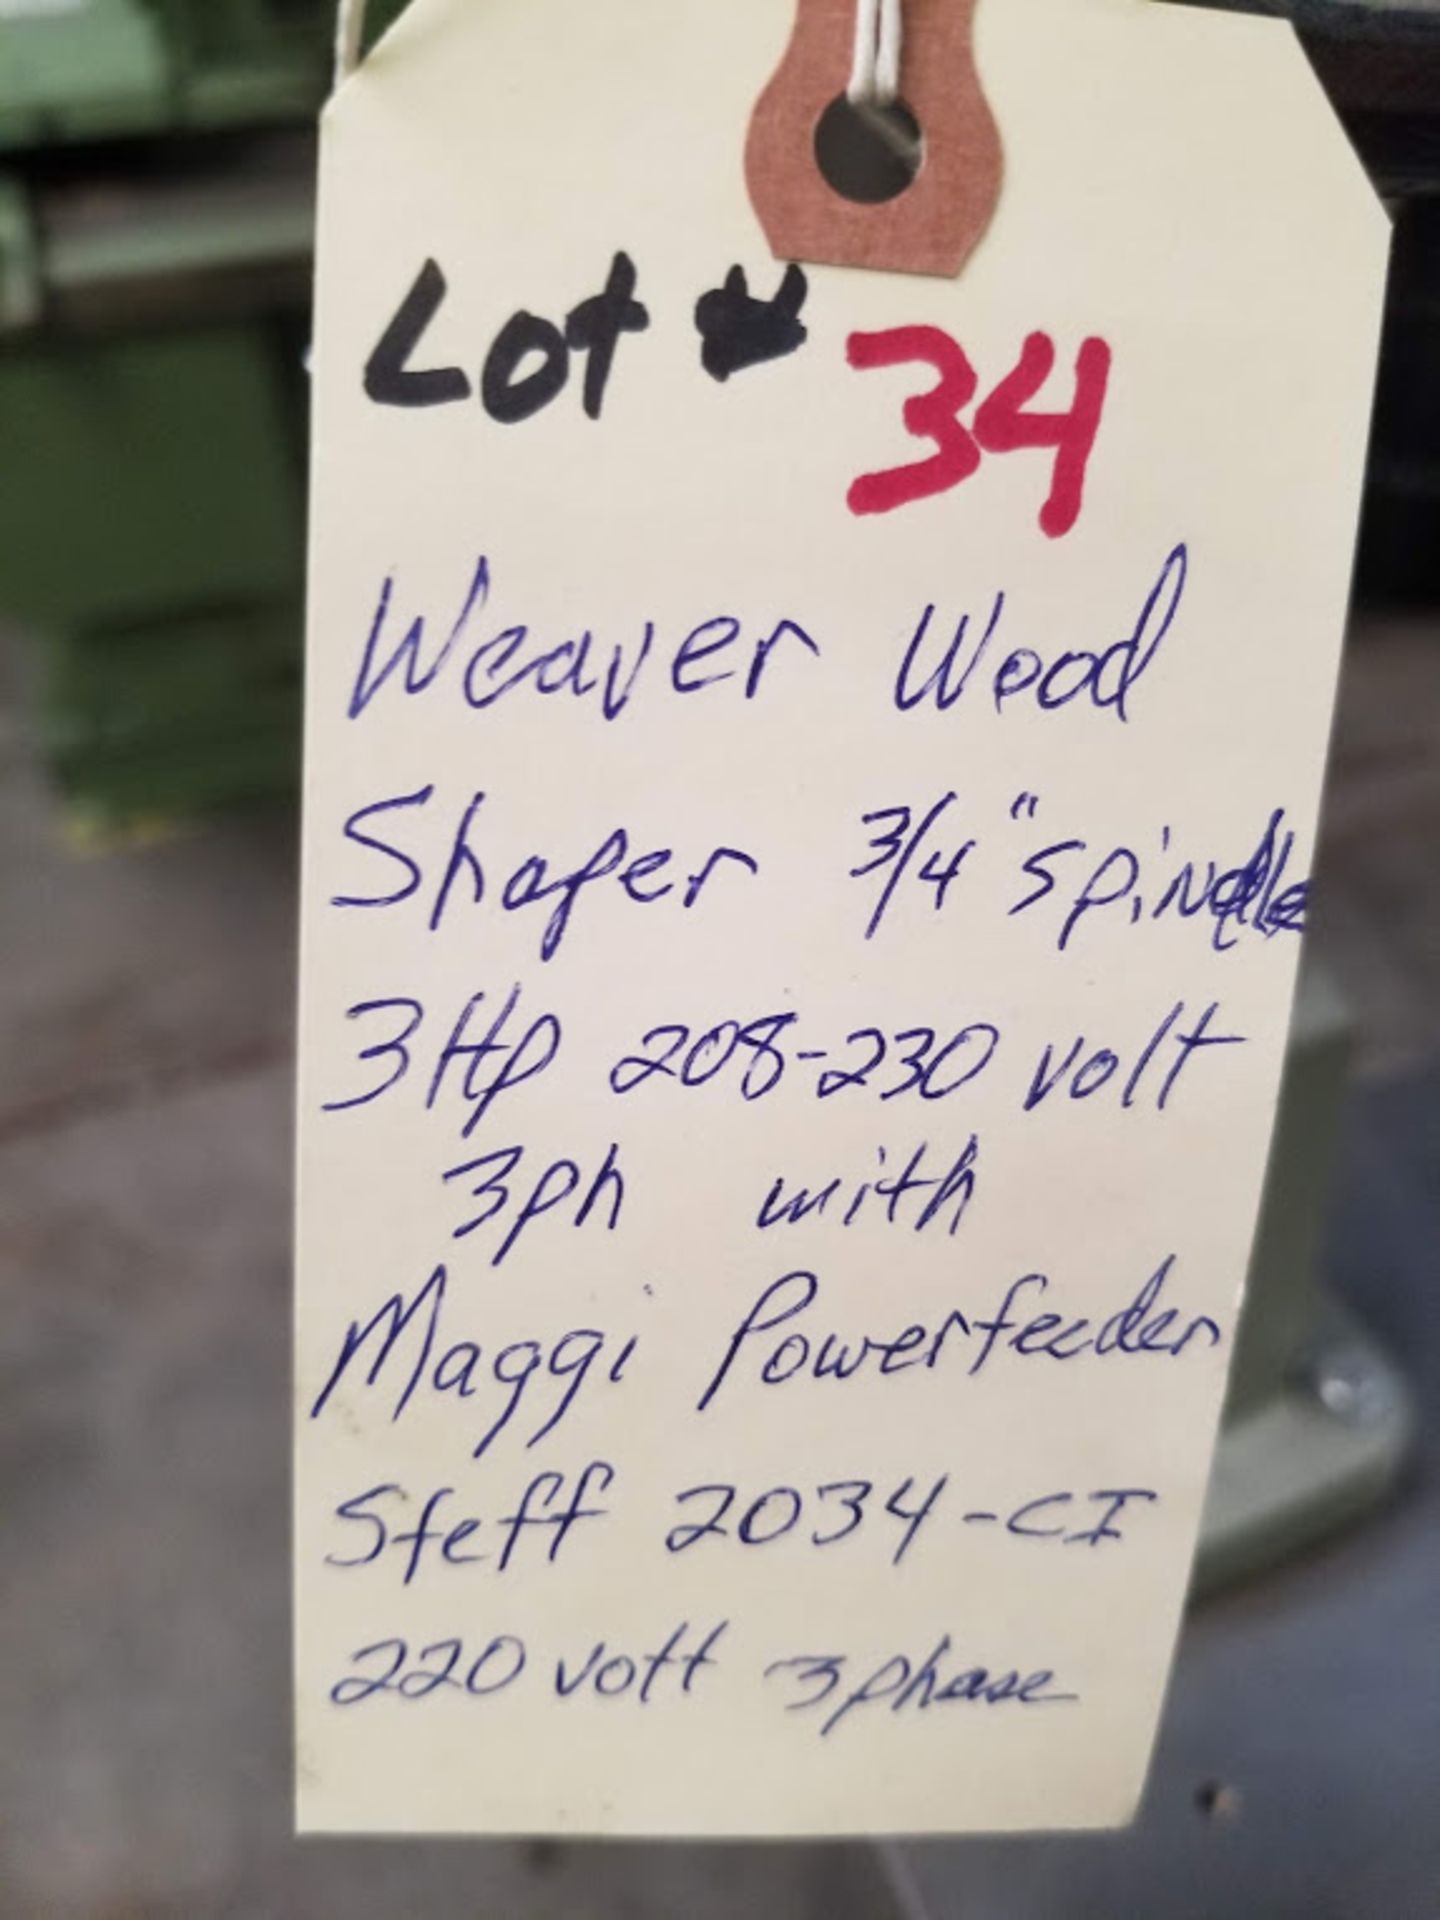 Lot # 34
Weaver Wood
Shaper 3/4" spindle
3Hp 208-230 volt
3ph with
Maggi Powerfeeder
Steff 2034-CI
220 volt 3phase